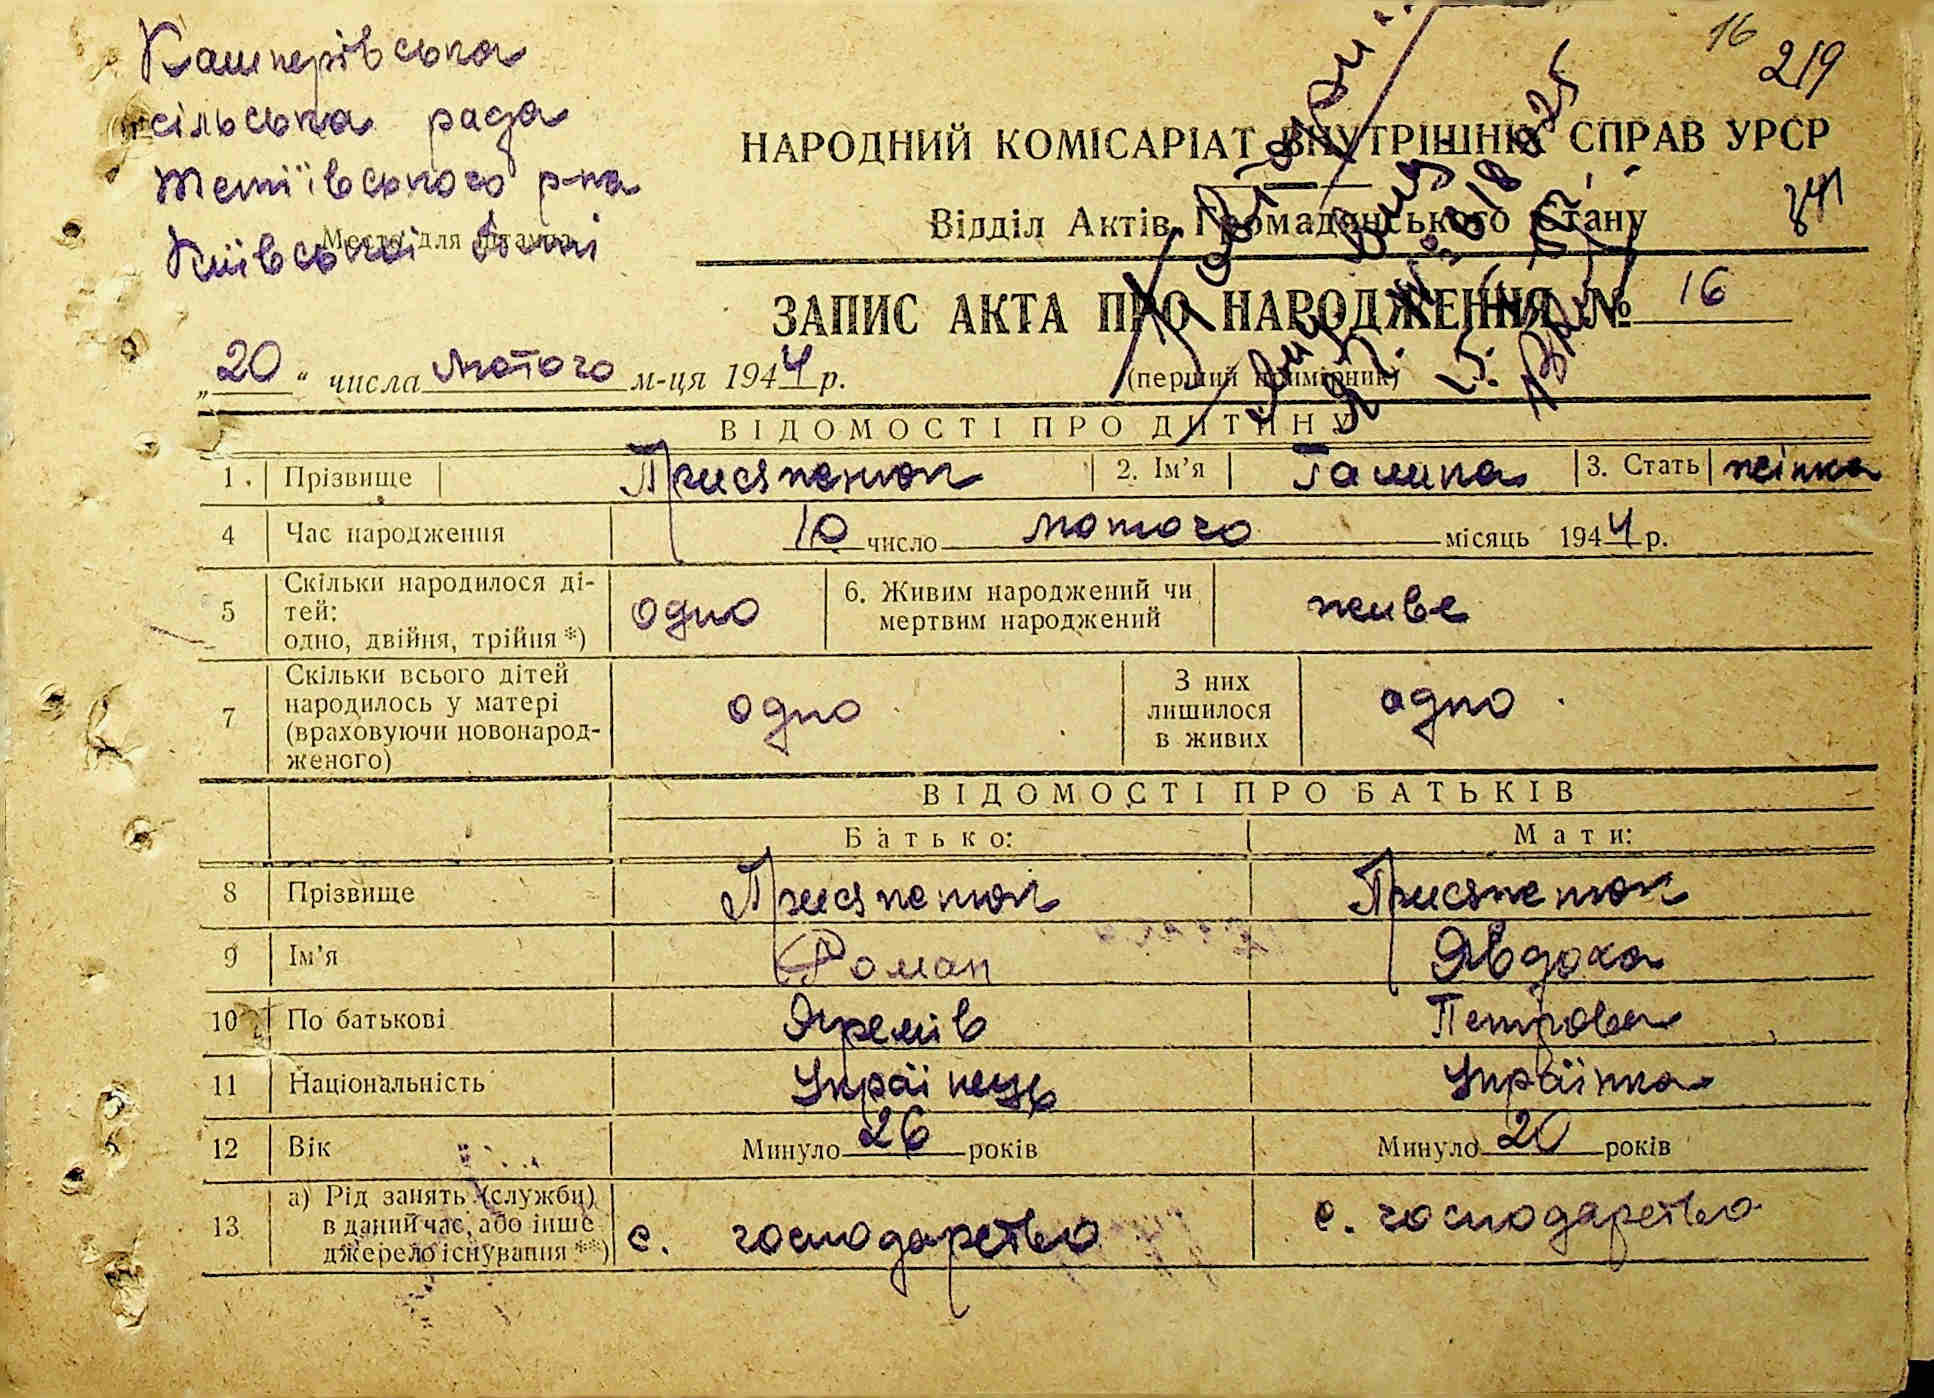 16
219
Кашперівська
сільська рада
Тетіївського р-на
Київської обл
Место для штампа
НАРОДНИЙ КОМІСАРІАТ ВНУТРІШНІХ СПРАВ УРСР
Відділ Актів Громадянського Стану
ЗАПИС АКТА ПРО НАРОДЖЕННЯ № 16
„20“ числа лютого м-ця 1944 р.
(перший примірник)
ВІДОМОСТІ ПРО ДИТИНУ
1. Прізвище Присяженюк 2. Ім'я Галина 3. Стать жінка
4 Час народження 10 число лютого місяць 1944 р.
5 Скільки народилося ді-
тей:
одно, двійня, трійня *) одно 6. Живим народжений чи
мертвим народжений живе
7 Скільки всього дітей
народилось у матері
(враховуючи новонарод-
женого) одно З них
лишилося
в живих одно
ВІДОМОСТІ ПРО БАТЬКІВ
Батько: Мати:
8 Прізвище Присяженюк Присяженюк
9 Ім'я Роман Явдоха
10 По батькові Яремів Петрова
11 Національність Українець Українка
12 Вік Минуло 26 років Минуло 20 років
13 а) Рід занять (службу)
в даний час, або інше
джерело існування **) с. господарство с. господарство